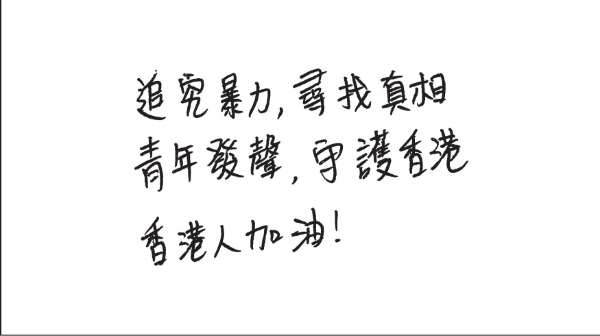 追究暴力,尋找真相
青年發聲,守護香港
香港人加油!